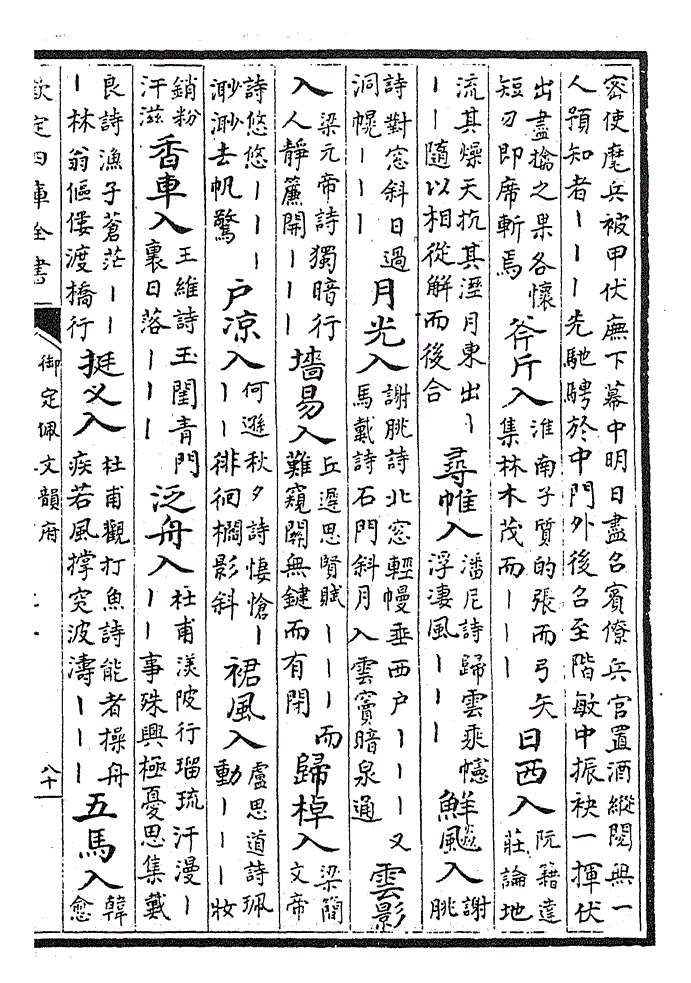 密使麾兵被甲伏廡下幕中明日盡召賓僚兵官置酒縱閱無一
人預知者丨丨丨先馳騁於中門外後召至階敏中振袂一揮伏
出盡擒之果各懷
短刃即席斬焉
斧斤入
淮南子質的張而弓矢
集林木茂而丨丨丨
日西入
阮籍達
莊論地
流其燥天抗其溼月東出丨
丨丨隨以相從解而後合
尋帷入
潘尼詩歸雲乘幰
浮凄風丨丨丨
鮮飈入
謝
朓
詩對窓斜日過
洞幌丨丨丨
月光入
謝朓詩北窓輕幔垂西户丨丨丨又
馬戴詩石門斜月入雲竇暗泉通
雲影
入
梁元帝詩獨暗行
人靜簾開丨丨丨
墻易入
丘遲思賢賦丨丨丨而
難窺關無鍵而有閉
歸棹入
梁簡
文帝
詩悠悠丨丨丨
渺渺去帆驚
户凉入
何遜秋夕詩悽愴丨
丨丨徘徊櫩影斜
裙風入
盧思道詩珮
動丨丨丨妝
銷粉
汗滋
香車入
王維詩玉閨青門
裏日落丨丨丨
泛舟入
杜甫渼陂行瑠琉汗漫丨
丨丨事殊興極憂思集戴
良詩漁子蒼茫丨丨
丨林翁傴僂渡橋行
挺叉入
杜甫觀打魚詩能者操舟
疾若風撑突波濤丨丨丨
五馬入
韓
愈
欽定四庫全書
御定佩文韻府
八十